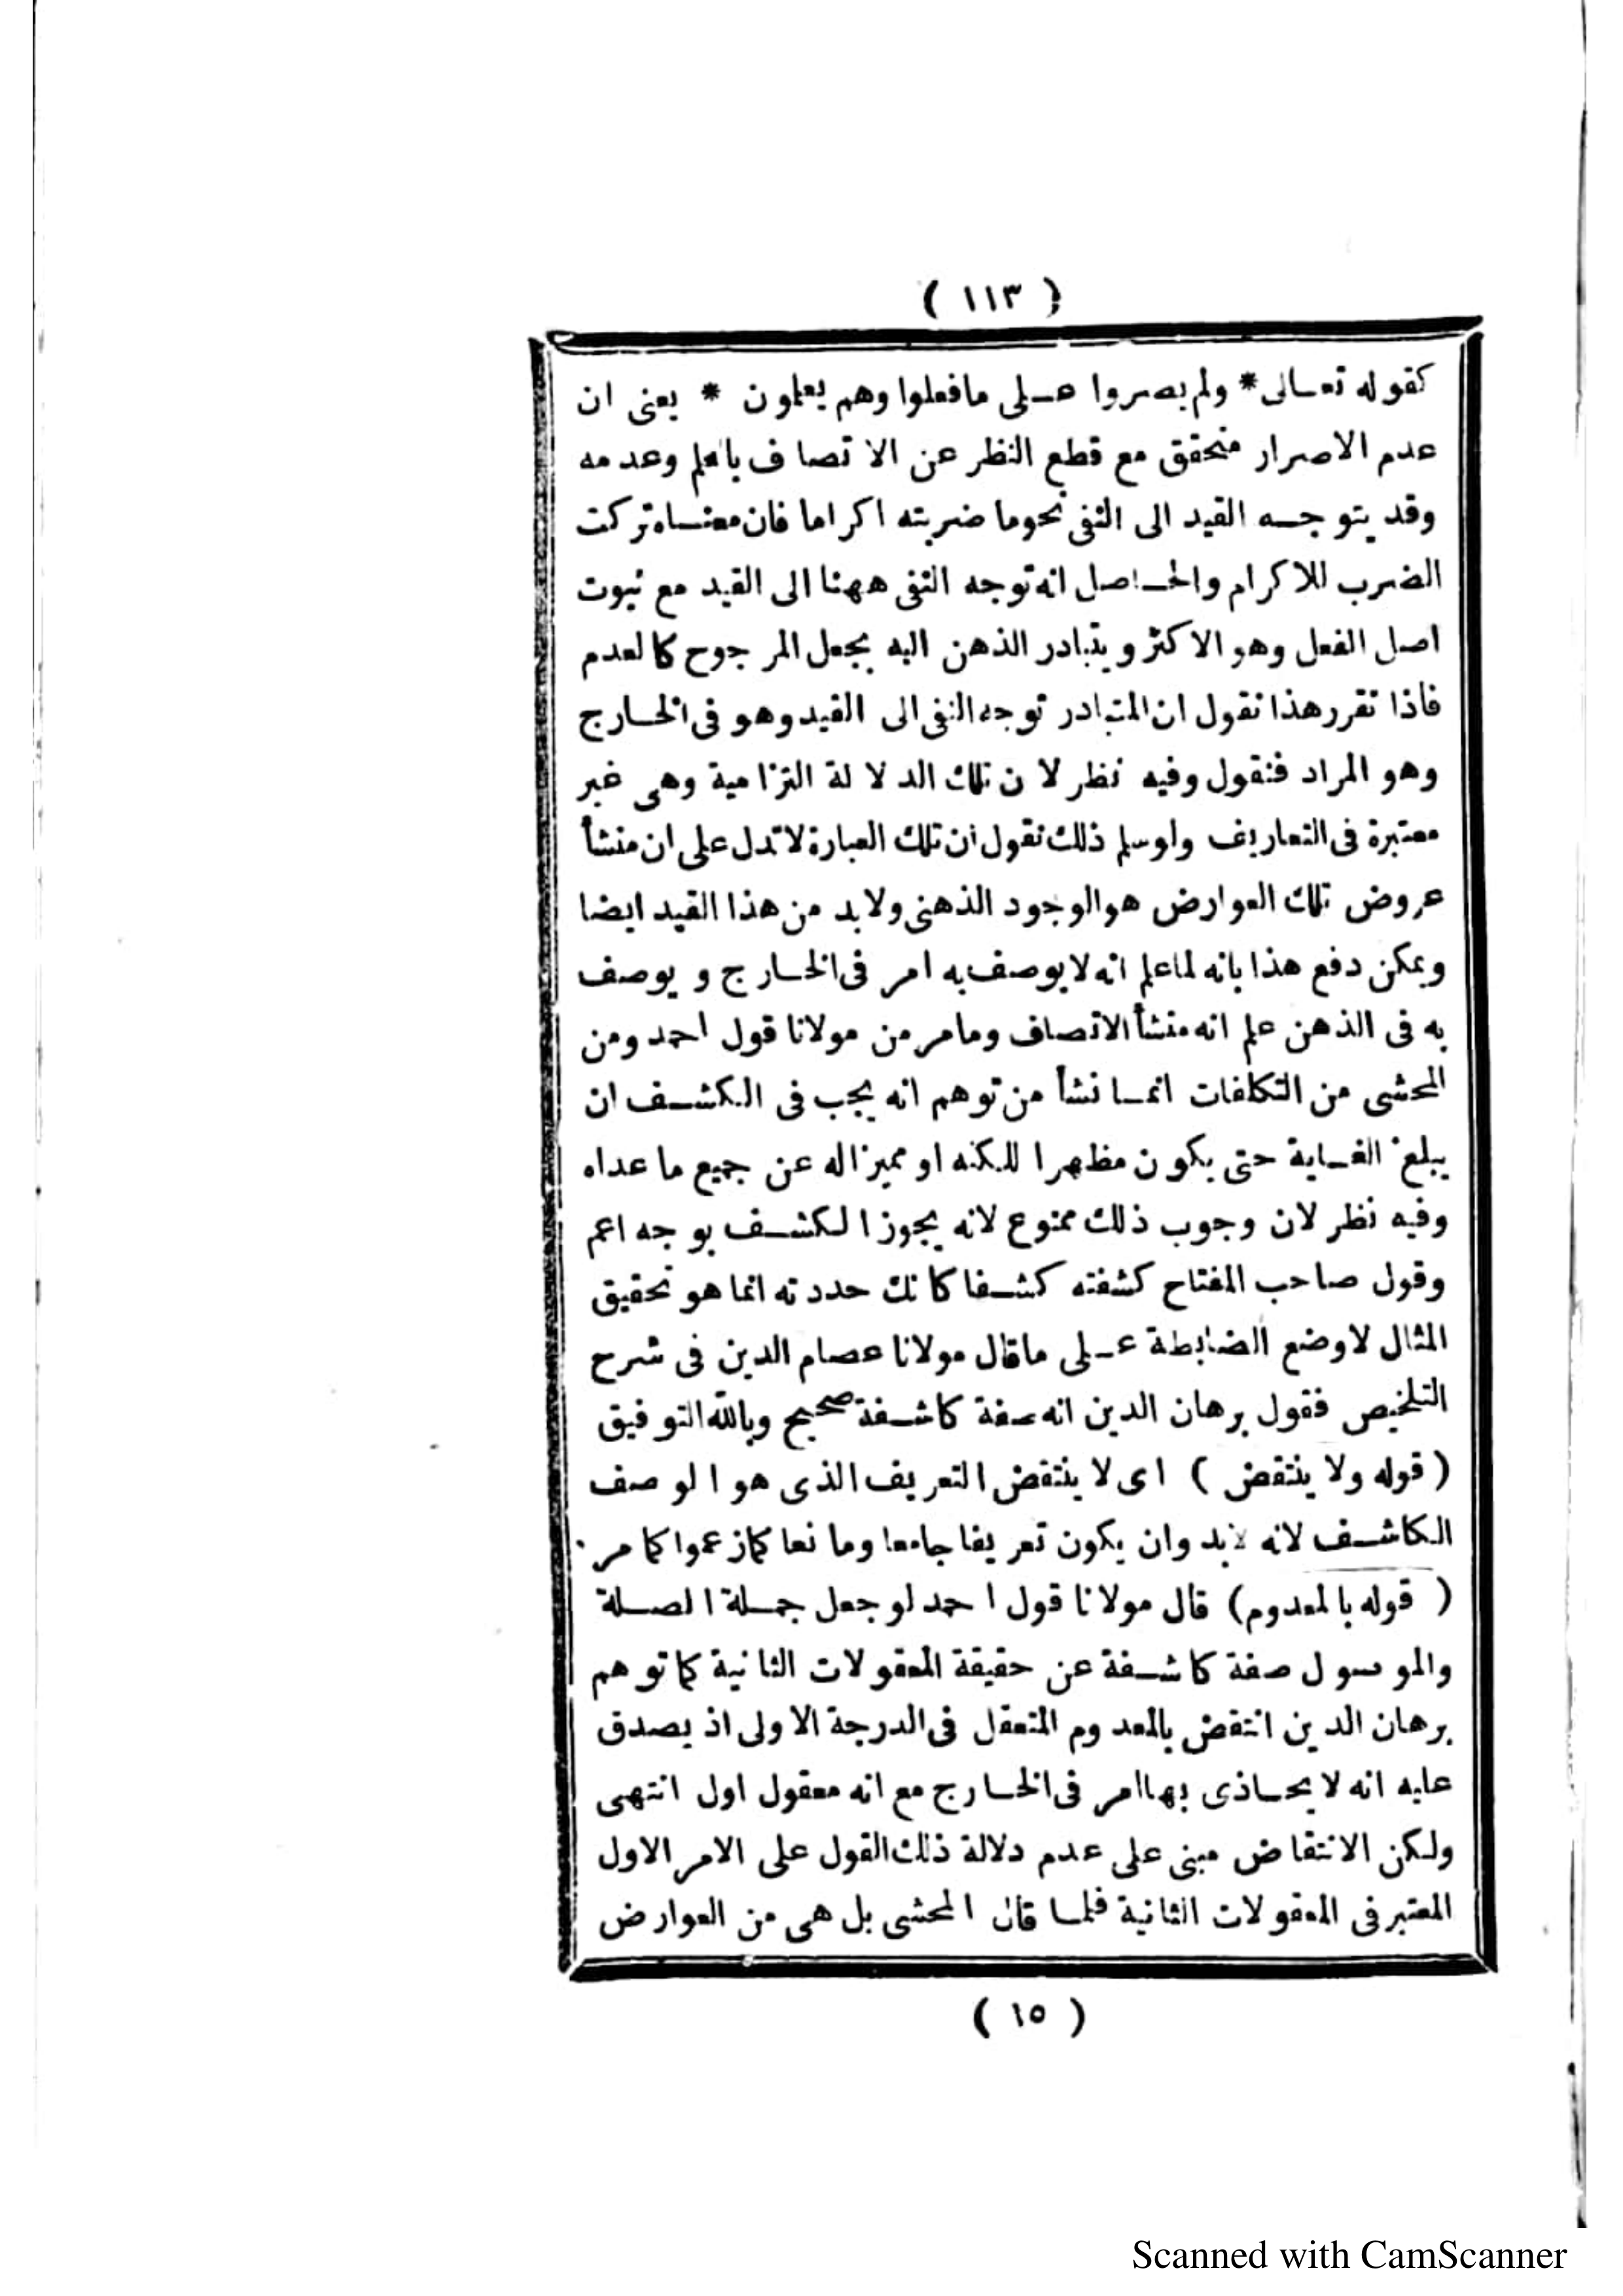 ( ١١٣ )
كقوله تعالى * ولم يصروا على ما فعلوا وهم يعلمون * يعنى ان
عدم الاصرار متحقق مع قطع النظر عن الاتصاف بالعلم وعدمه
وقد يتوجه القيد الى النفى نحو ما ضربته اكراما فان معناه تركت
الضرب للاكرام والحاصل انه توجه النفى ههنا الى القيد مع ثبوت
اصل الفعل وهو الاكثر ويتبادر الذهن اليه بجعل المرجوح كالعدم
فاذا تقرر هذا نقول ان المتبادر توجه النفى الى القيد وهو فى الخارج
وهو المراد فنقول وفيه نظر لان تلك الدلالة التزامية وهى غير
معتبرة فى التعاريف ولو سلم ذلك نقول ان تلك العبارة لا تدل على ان منشأ
عروض تلك العوارض هو الوجود الذهنى ولابد من هذا القيد ايضا
ويمكن دفع هذا بانه لما علم انه لا يوصف به امر فى الخارج ويوصف
به فى الذهن علم انه منشأ الاتصاف وما مر من مولانا قول احمد ومن
المحشى من التكلفات انما نشأ من توهم انه يجب فى الكشف ان
يبلغ الغاية حتى يكون مظهرا للكنه او مميزا له عن جميع ما عداه
وفيه نظر لان وجوب ذلك ممنوع لانه يجوز الكشف بوجه اعم
وقول صاحب المفتاح كشفته كشفا كانك حددته انما هو تحقيق
المثال لا وضع الضابطة على ما قال مولانا عصام الدين فى شرح
التلخيص فقول برهان الدين انه صفة كاشفة صحيح وبالله التوفيق
( قوله ولا ينتقض ) اى لا ينتقض التعريف الذى هو الوصف
الكاشف لانه لابد وان يكون تعريفا جامعا ومانعا كما زعموا كما مر
( قوله بالمعدوم ) قال مولانا قول احمد لو جعل جملة الصلة
والموصول صفة كاشفة عن حقيقة المعقولات الثانية كما توهم
برهان الدين انتقض بالمعدوم المتعقل فى الدرجة الاولى اذ يصدق
عليه انه لا يحاذى بها امر فى الخارج مع انه معقول اول انتهى
ولكن الانتقاض مبنى على عدم دلالة ذلك القول على الامر الاول
المعتبر فى المعقولات الثانية فلما قال المحشى بل هى من العوارض
( ١٥ )
Scanned with CamScanner